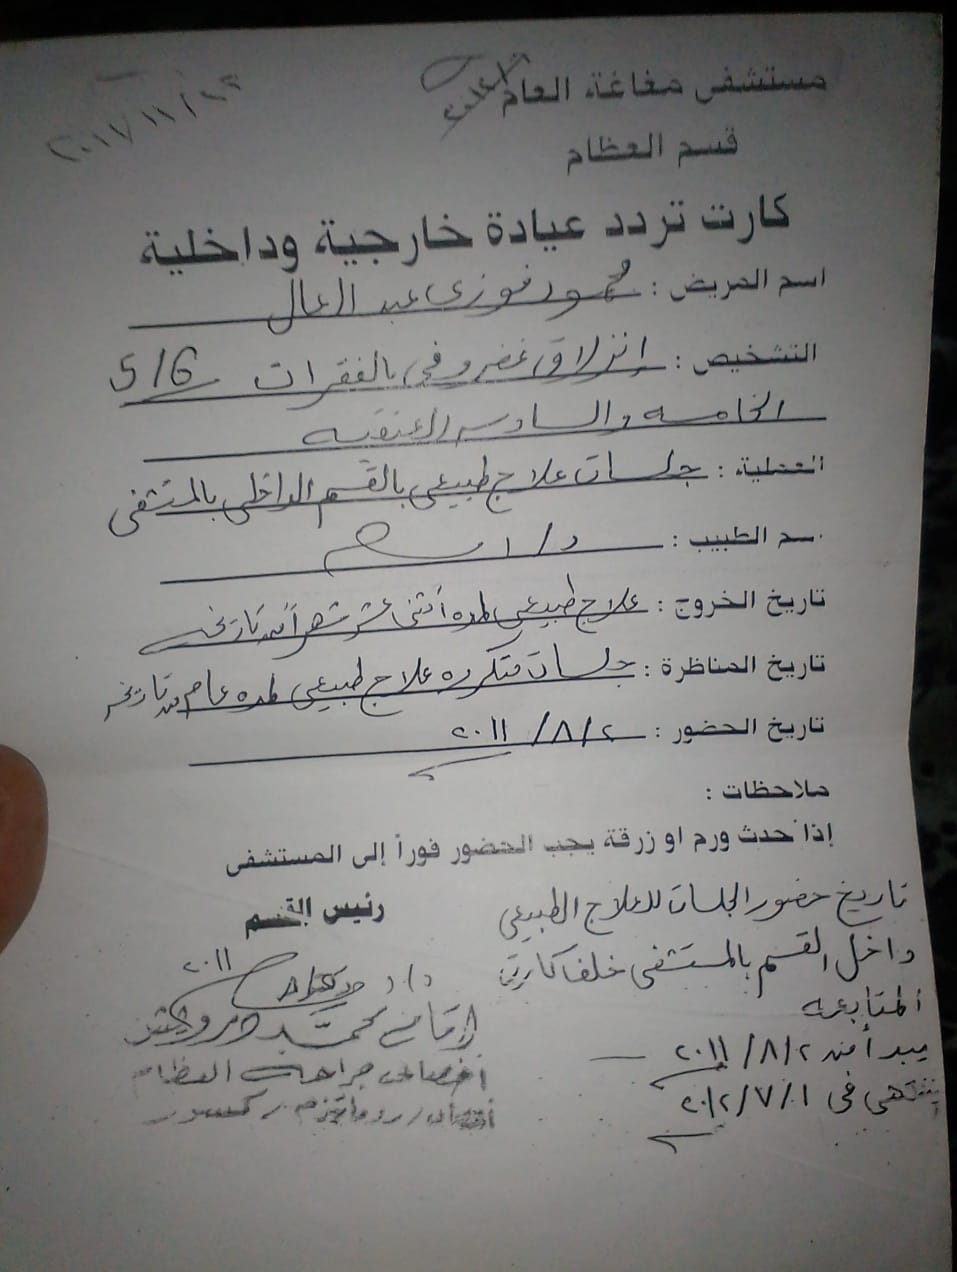 مستشفى مغاغة العام
قسم العظام
كارت تردد عيادة خارجية وداخلية
اسم المريض : محمود فوزى عبد العال
التشخيص : إنزلاق غضروفى بالفقرات 5/6
الخامسه والسادسه العنقيه
العملية : جلسات علاج طبيعى بالقسم الداخلى بالمستشفى
سم الطبيب : د/
تاريخ الخروج : علاج طبيعى لمده أثنى عشر شهراً من تاريخه
تاريخ المناظرة : جلسات متكرره علاج طبيعى لمده عام من تاريخه
تاريخ الحضور : ٢٠١١/٨/٢
ملاحظات :
إذا حدث ورم او زرقة يجب الحضور فوراً إلى المستشفى
رئيس القسم
٢٠١١
محمد
أخصائى جراحة العظام
تاريخ حضور الجلسات للعلاج الطبيعى
داخل القسم بالمستشفى خلف كارت
المتابعه
يبدأ من ٢٠١١/٨/٢
ينتهى فى ٢٠١٢/٧/١